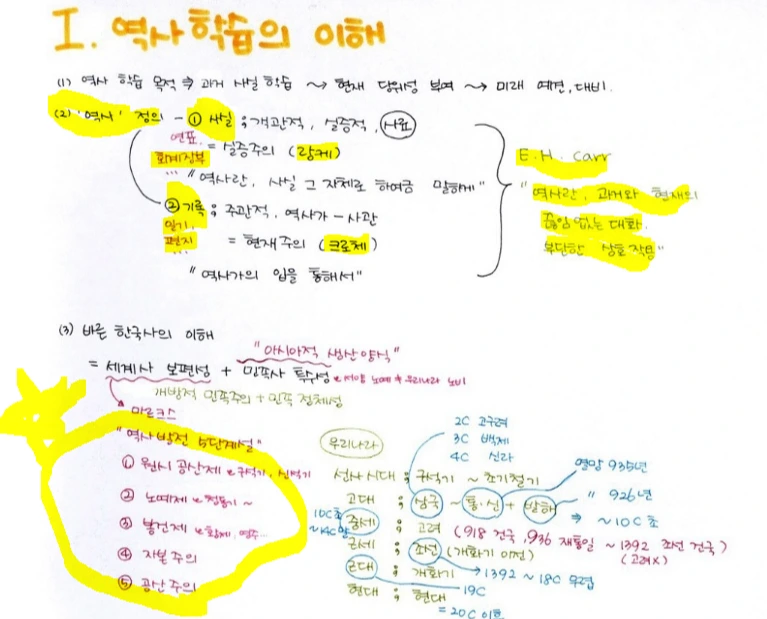 I. 역사 학습의 이해
(1) 역사 학습 목적 ⇒ 과거 사실 학습 ⇝ 현재 당위성 부여 ⇝ 미래 예견, 대비.
(2) '역사' 정의 - ① 사실 ; 객관적, 실증적, 사료
연표, 회계장부 ...
= 실증주의 (랑케)
"역사란, 사실 그 자체로 하여금 말하게"
② 기록 ; 주관적, 역사가 - 사관
일기, 편지 ...
= 현재주의 (크로체)
"역사가의 입을 통해서"
E. H. Carr
"역사란, 과거와 현재의
끊임 없는 대화.
부단한 상호작용"
(3) 바른 한국사의 이해
"아시아적 생산양식"
= 세계사 보편성 + 민족사 특수성
서양 노예 ≠ 우리나라 노비
개방적 민족주의 + 민족 정체성
마르크스
"역사발전 5단계설"
① 원시 공산제 구석기, 신석기
② 노예제 청동기 ~
③ 봉건제 황제, 영주..
④ 자본주의
⑤ 공산주의
우리나라
2C 고구려
3C 백제
4C 신라
선사시대 ; 구석기 ~ 초기철기
고대 ; 삼국 ~ 통·신 + 발해
멸망 935년
" 926년
⇒ ~10C 초
10C초 ~14C말
중세 ; 고려 (918 건국, 936 재통일 ~ 1392 조선 건국)
(고려X)
근세 ; 조선 (개화기 이전)
→ 1392 ~ 18C 무렵
근대 ; 개화기
19C
현대 ; 현대
= 20C 이후